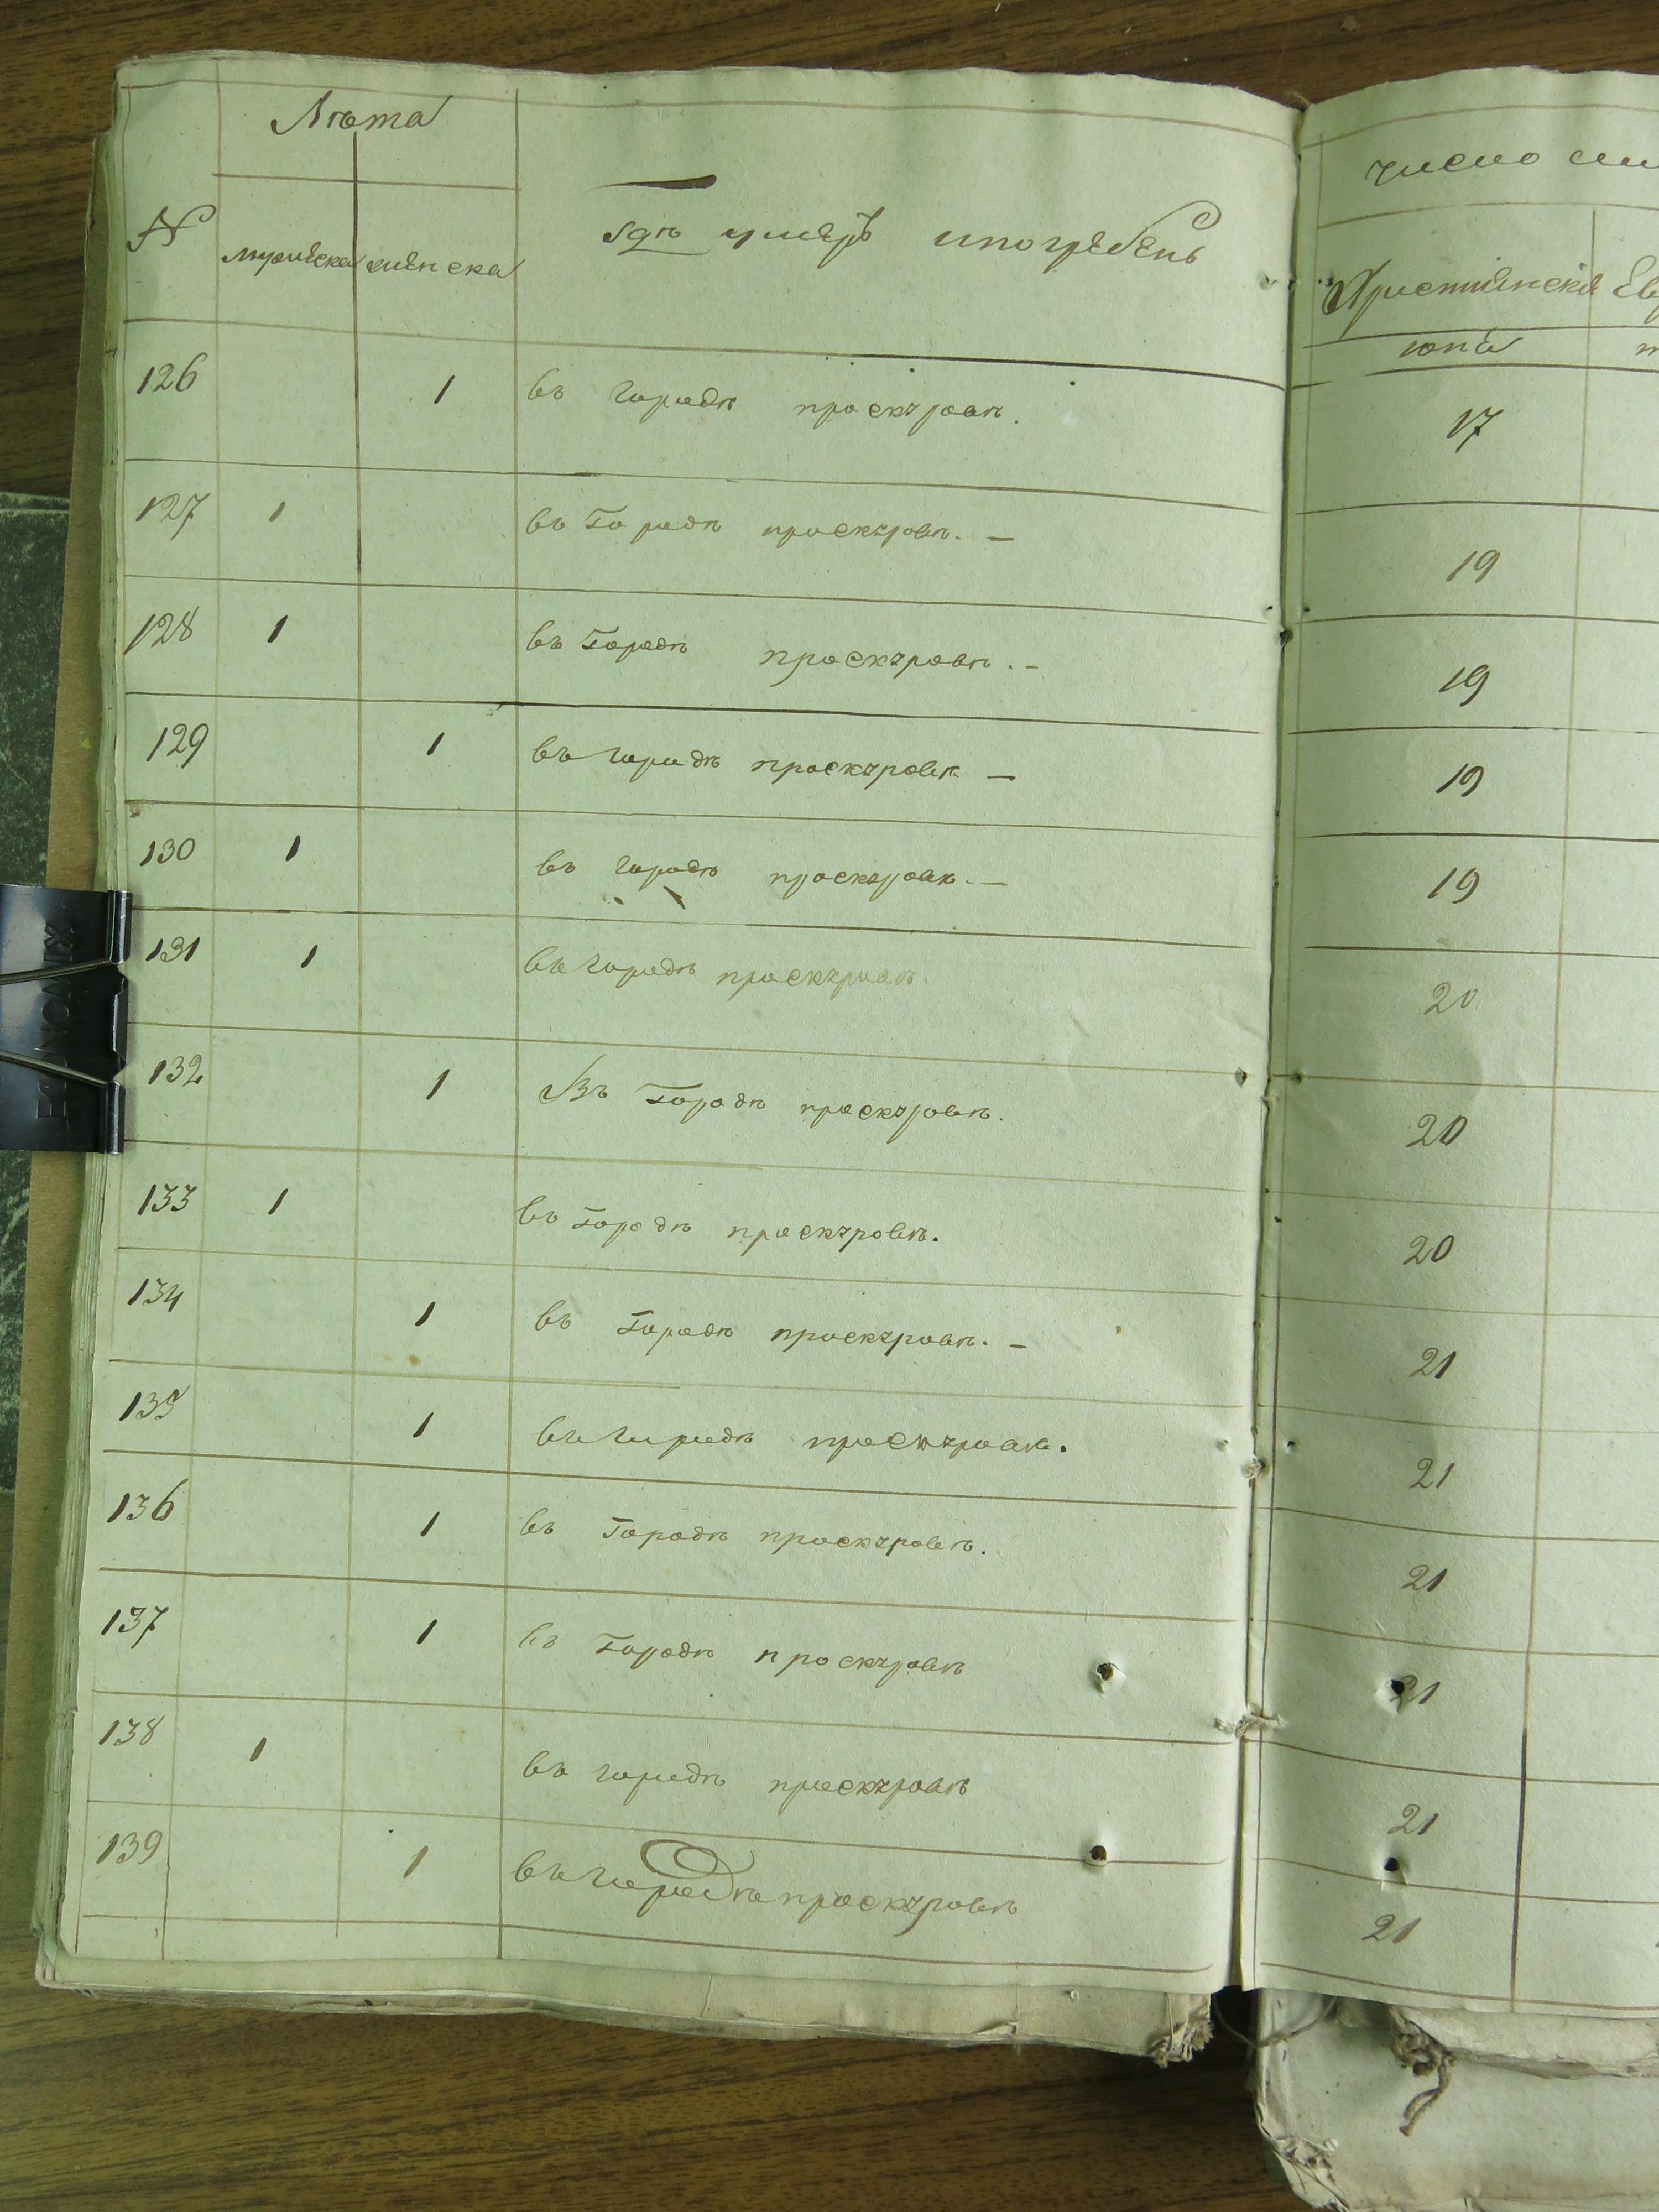 Лѣта
№ мужеска женска гдѣ умеръ и погребенъ
126 1 въ городѣ проскуровѣ.
127 1 въ Городѣ проскуровѣ. —
128 1 въ Городѣ проскуровѣ. -
129 1 въ городѣ проскуровѣ —
130 1 въ городѣ проскуровѣ. —
131 1 въ городѣ проскуровѣ.
132 1 Въ Городѣ проскуровѣ.
133 1 въ Городѣ проскуровѣ.
134 1 въ Городѣ проскуровѣ. -
135 1 въ городѣ проскуровѣ.
136 1 въ Городѣ проскуровѣ.
137 1 въ Городѣ проскуровѣ
138 1 въ городѣ проскуровѣ
139 1 въ городѣ проскуровѣ
число
Христіянска Ев
17
19
19
19
19
20
20
20
21
21
21
21
21
21
ECONOMIX